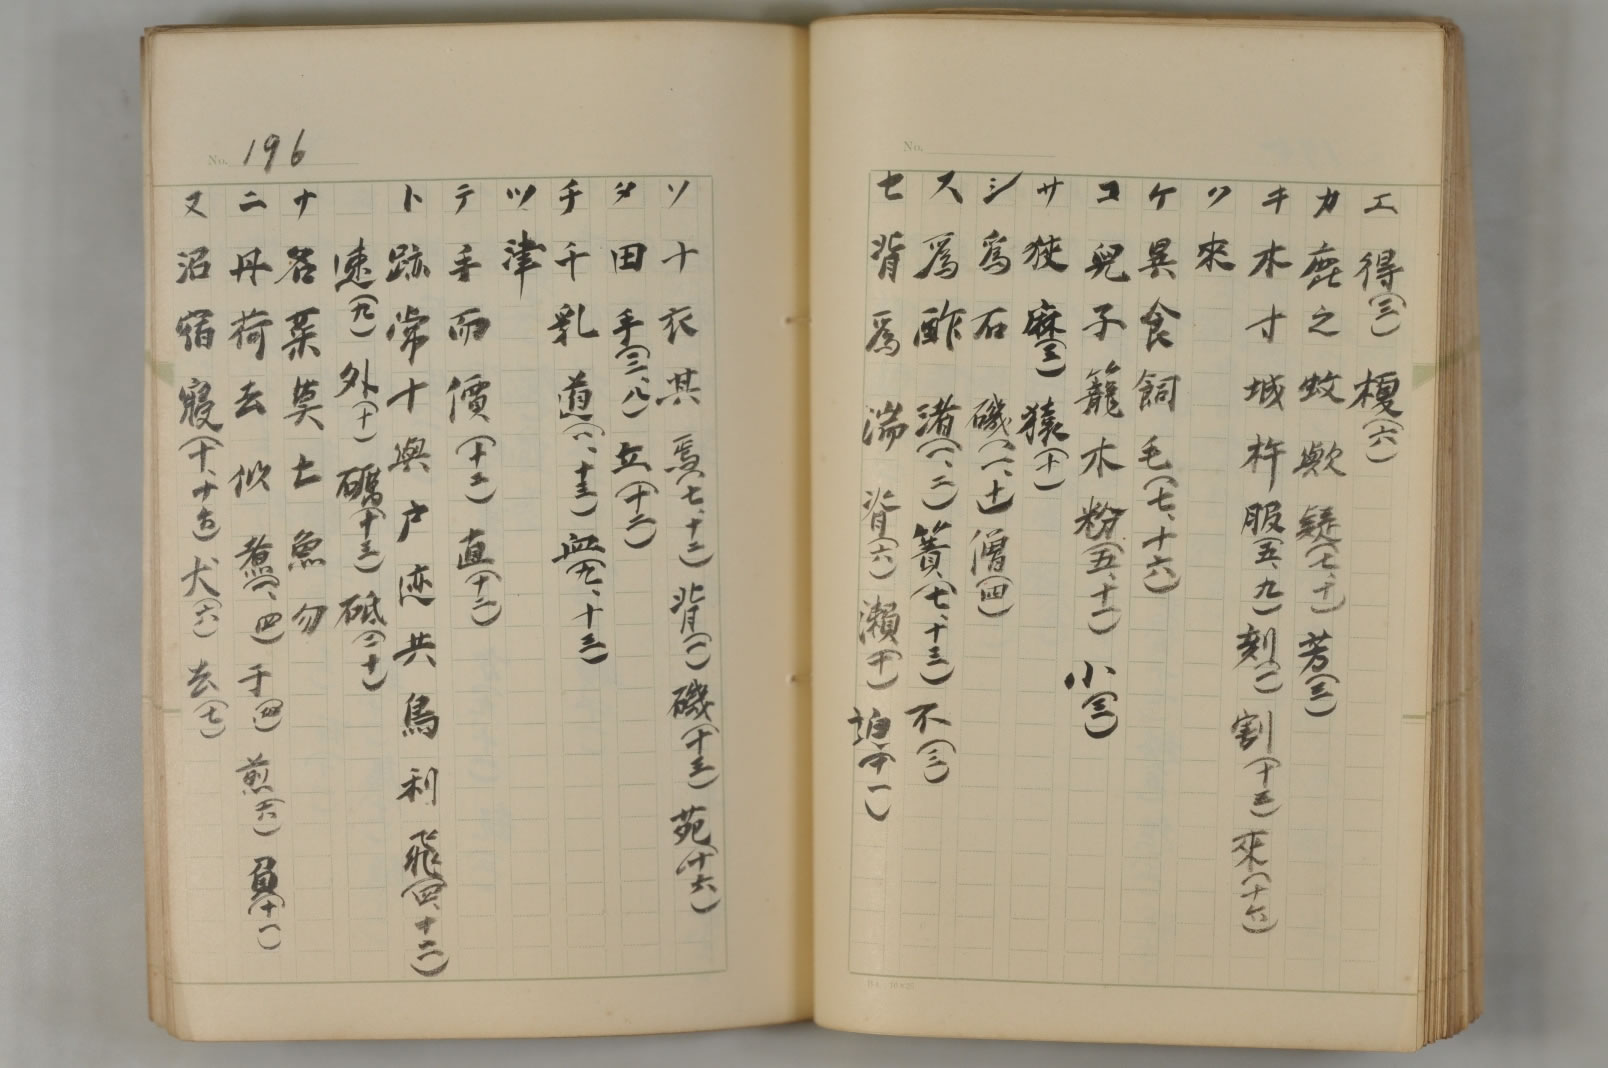 No.
エ 得(三) 榎(六)
カ 鹿 之 蚊 歟 疑(七、十) 芳(三)
キ 木 寸 城 杵 服(五、九) 刻(一) 割(十三) 來(十六)
ク 來
ケ 異 食 飼 毛(七、十六)
コ 兒 子 籠 木 粉(五、十一) 小(三)
サ 狹 麻(三) 猿(十)
シ 爲 石 磯(一、十) 僧(四)
ス 爲 酢 渚(一、二) 簀(七、十三) 不(三)
セ 背 爲 湍 脊(六) 瀬(十)
No. 196
ソ 十 衣 其 焉(七、十二) 背(一) 磯(十三) 苑(十六)
タ 田 手(三、八) 立(十二)
チ 千 乳 道(八、十三) 血(九、十三)
ツ 津
テ 手 而 價(十三) 直(十二)
ト 跡 常 十 與 戸 恋 共 鳥 利 飛(四、十二)
速(九) 外(十) 礪(十三) 砥(二十)
ナ 名 菜 莫 七 魚 勿
ニ 丹 荷 去 似 煮(一、四) 于(四) 煎(十六) 負(十一)
ヌ 沼 宿 寝(十、十五) 犬(六) 去(七)